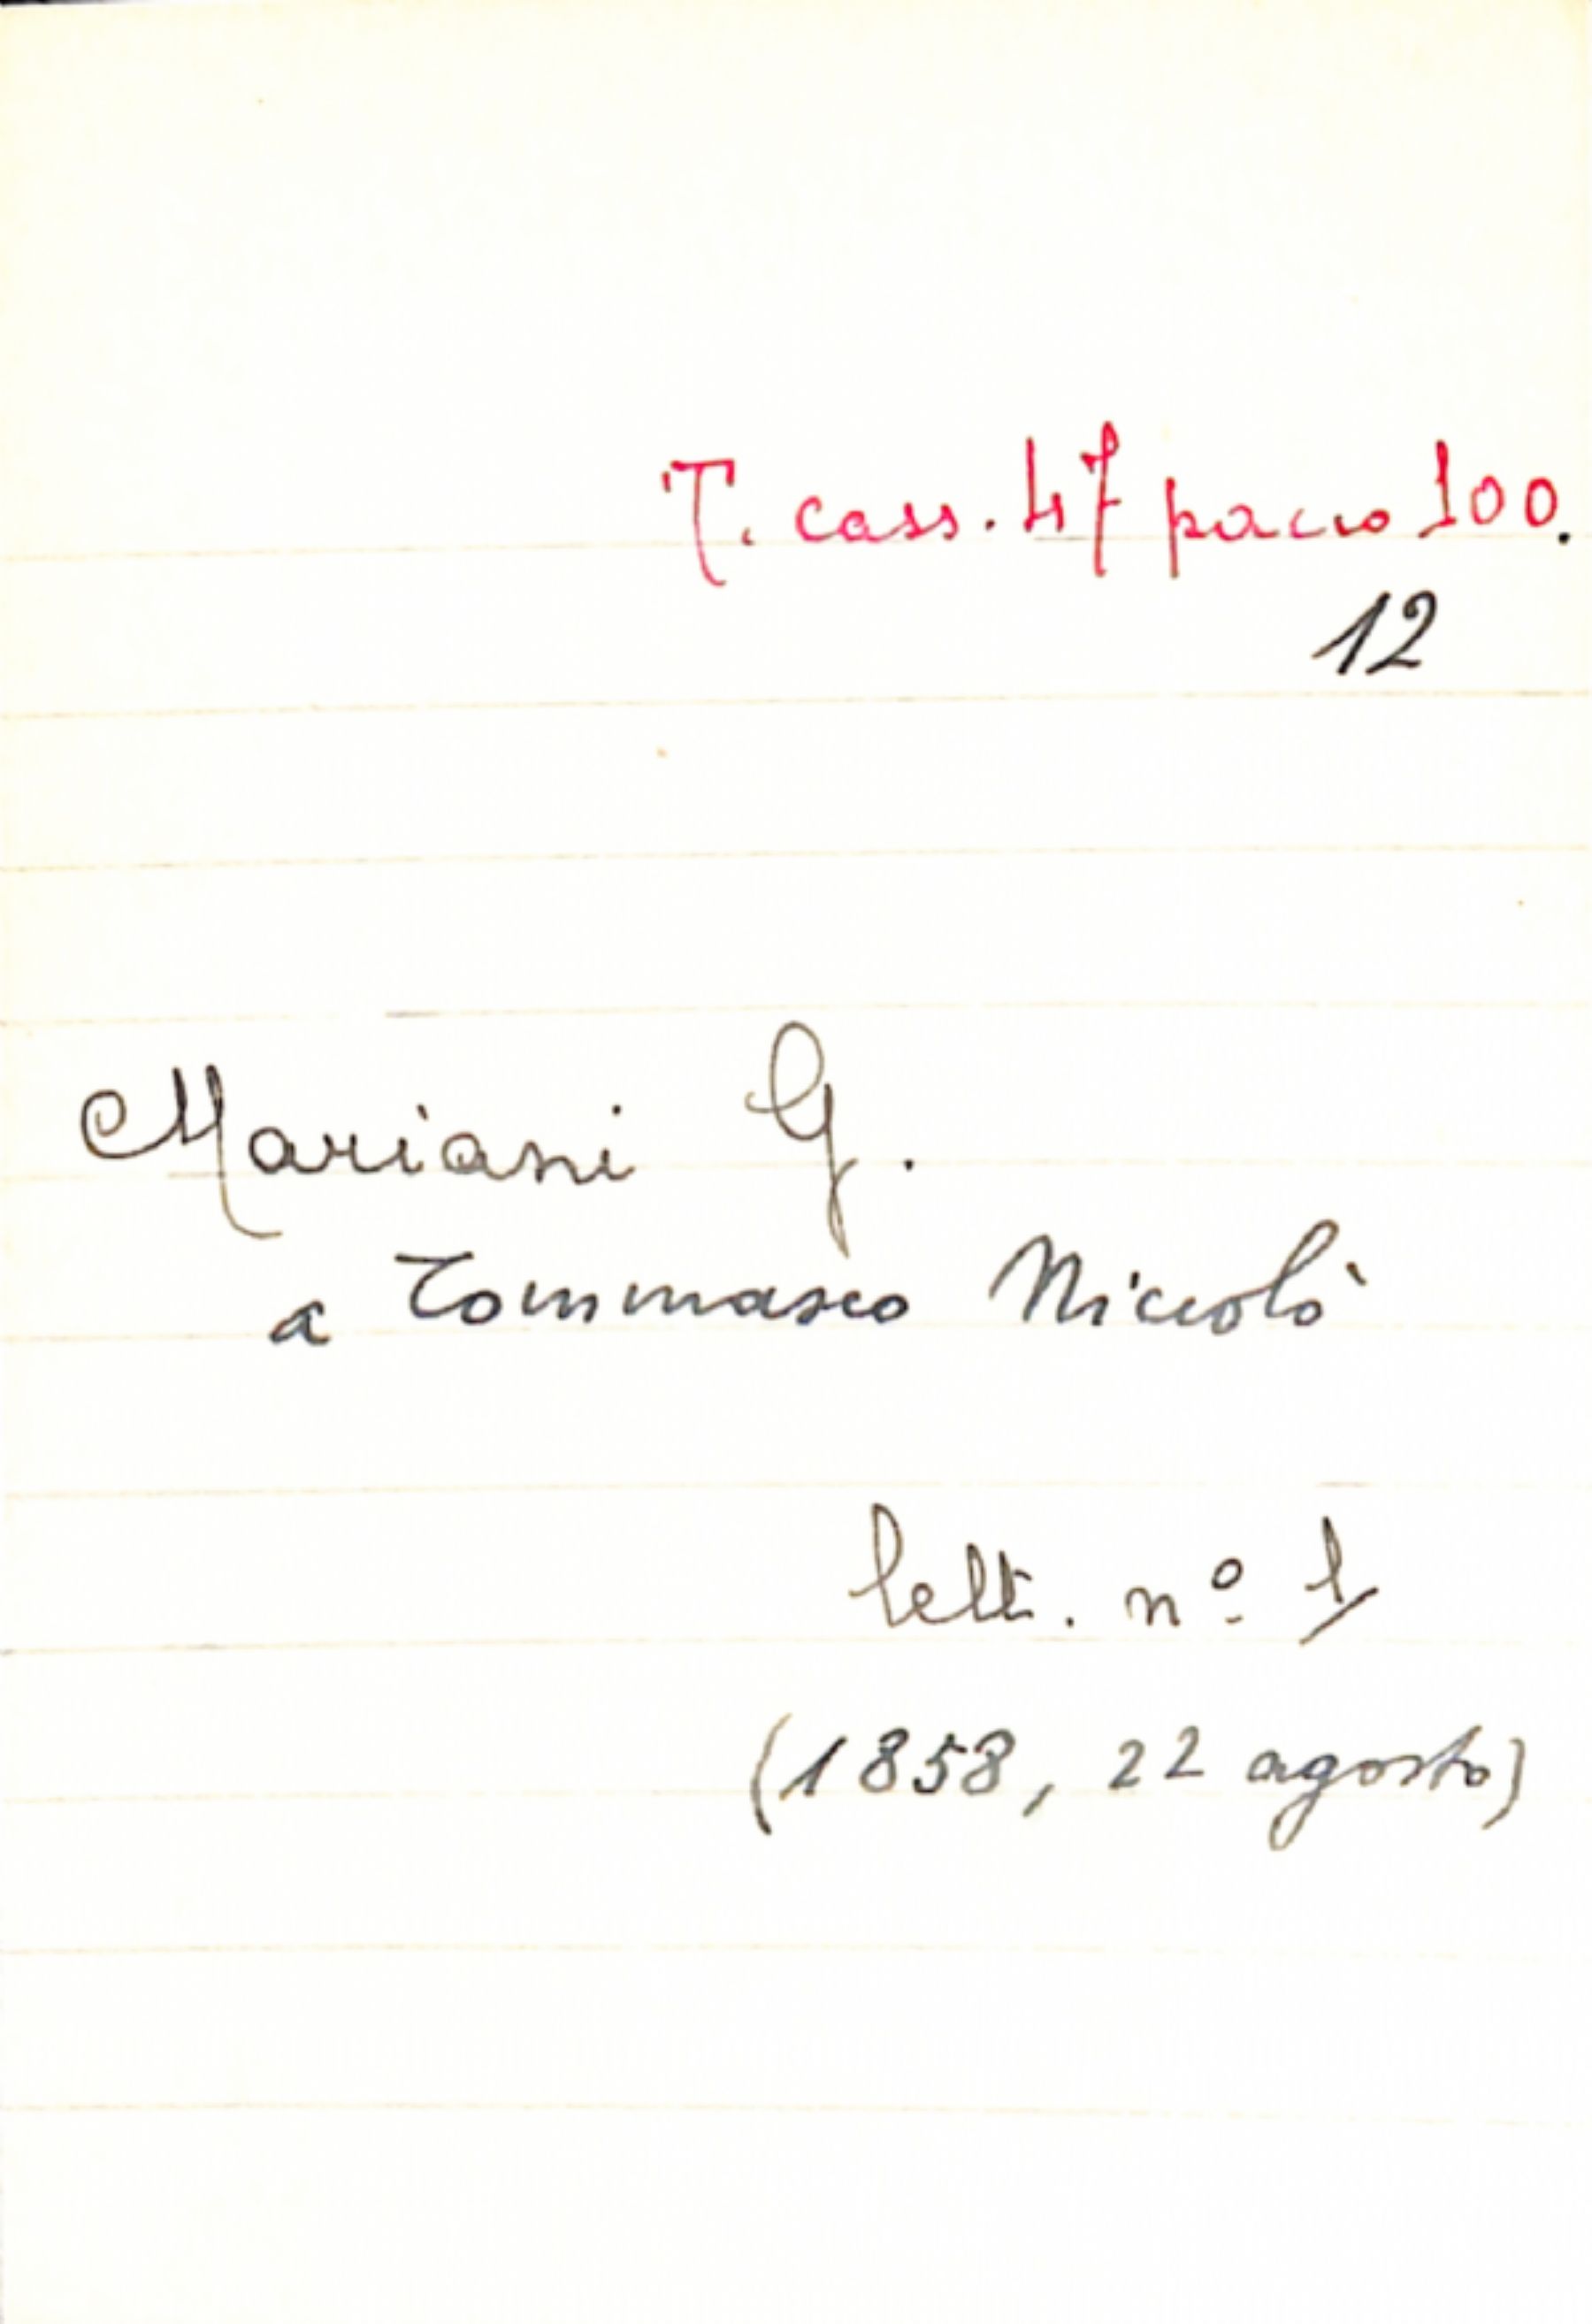 T. cass. 47 pacco 100.
12
Mariani G.
a Tommaseo Niccolò
lett. nº 1
(1858, 22 agosto)